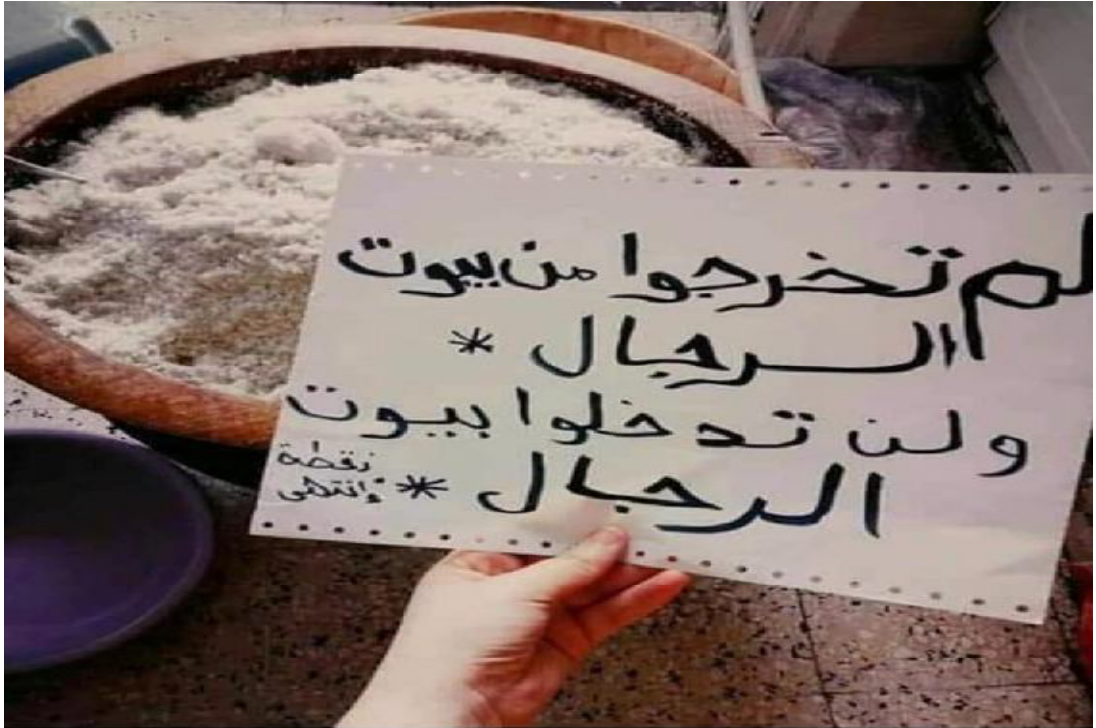 لم تخرجوا من بيوت
الرجال *
ولن تدخلوا بيوت
الرجال *
نقطة
إنتهى